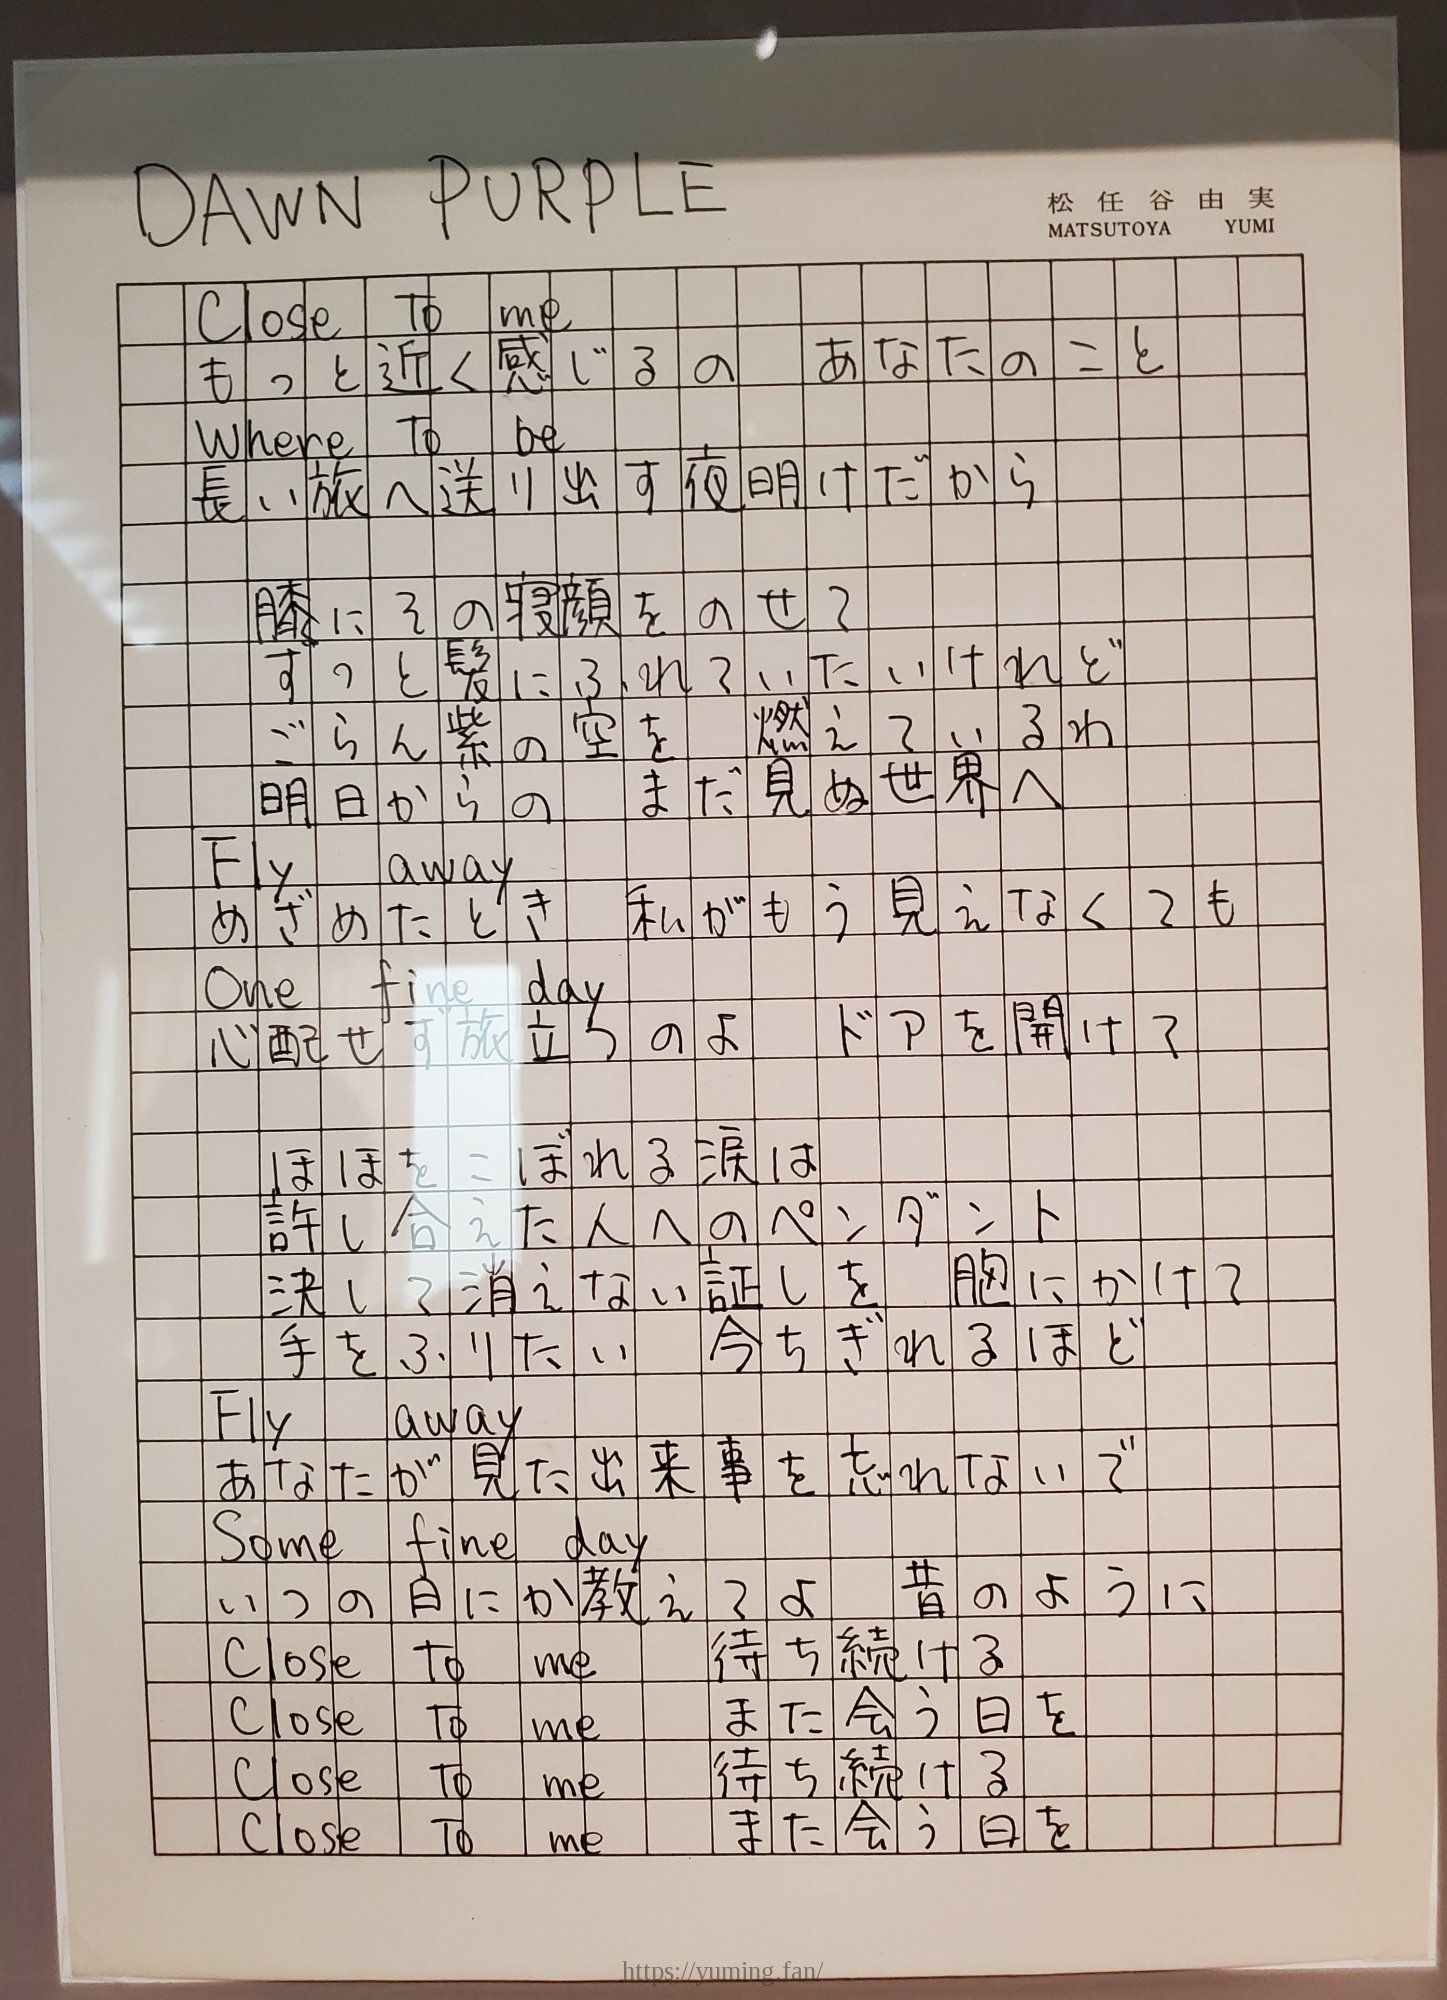 DAWN PURPLE
松任谷由実
MATSUTOYA YUMI
Close To me
もっと近く感じるの あなたのこと
Where To be
長い旅へ送り出す夜明けだから
膝にその寝顔をのせて
ずっと髪にふれていたいけれど
ごらん紫の空を 燃えているわ
明日からの まだ見ぬ世界へ
Fly away
めざめたとき 私がもう見えなくても
One fine day
心配せず旅立ちのよ ドアを開けて
ほほをこぼれる涙は
許し合えた人へのペンダント
決して消えない証しを 胸にかけて
手をふりたい 今ちぎれるほど
Fly away
あなたが見た出来事を忘れないで
Some fine day
いつの日にか教えてよ 昔のように
Close To me 待ち続ける
Close To me また会う日を
Close To me 待ち続ける
Close To me また会う日を
https://yuming.fan/